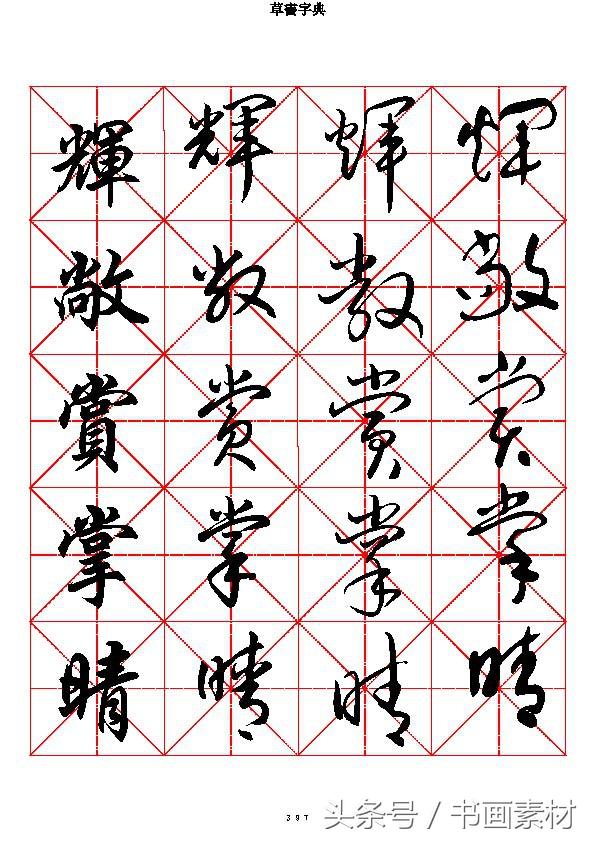 草書字典
輝 輝 輝 輝
敞 敞 敞 敞
賞 賞 賞 賞
掌 掌 掌 掌
晴 晴 晴 晴
397
头条号 / 书画素材